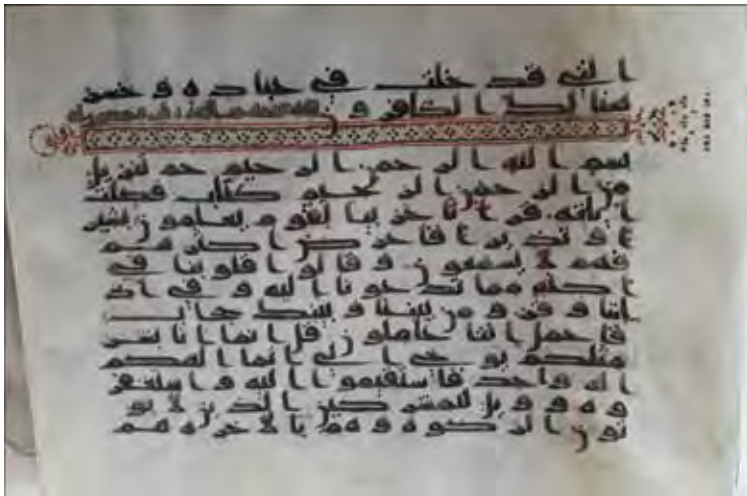 التي قد خلت في عباده و خسر
هنالك الكافرون
بسم الله الرحمن الرحيم حم تنزيل
من الرحمن الرحيم كتاب فصلت
اياته قرانا عربيا لقوم يعلمون بشير
ا و نذيرا فاعرض اكثرهم
فهم لا يسمعون و قالوا قلوبنا في
اكنه مما تدعونا اليه و في اذ
اننا وقر و من بيننا و بينك حجاب
فاعمل اننا عاملون قل انما انا بشر
مثلكم يوحى الي انما الهكم
اله واحد فاستقيموا اليه و استغفر
وه و ويل للمشركين الذين لا يو
تون الزكوه و هم بالاخره هم